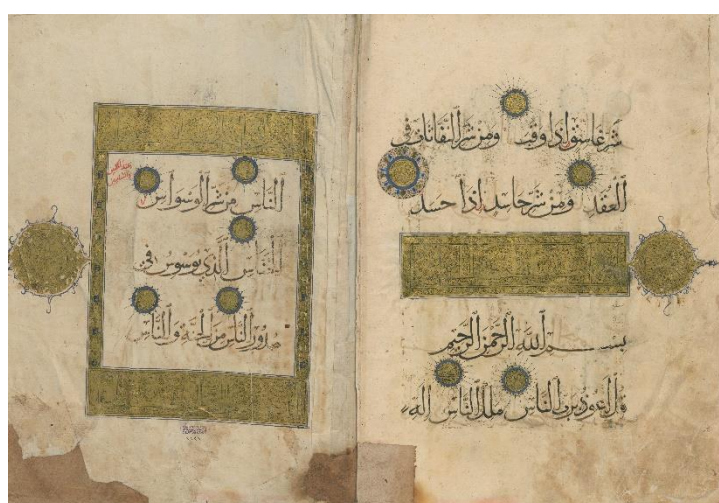 شر غاسق اذا وقب ومن شر النفاثات في
العقد ومن شر حاسد اذا حسد
بسم الله الرحمن الرحيم
قل اعوذ برب الناس ملك الناس اله
الناس من شر الوسواس
الخناس الذي يوسوس في
صدور الناس من الجنة والناس